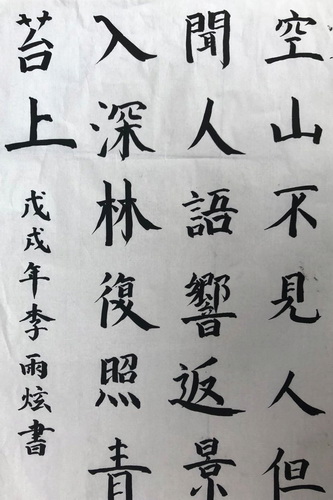 空山不見人但
聞人語響返景
入深林復照青
苔上
戊戌年李雨炫書